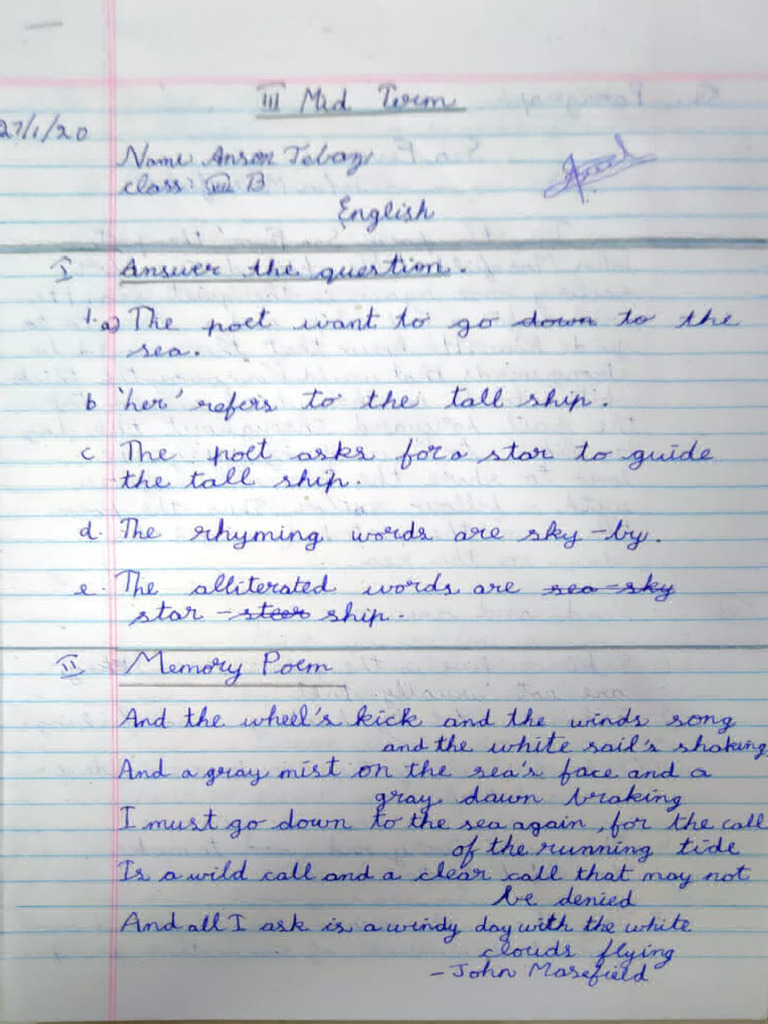 III Mid Term
27/1/20
Name: Anson Tebay
class: VII B
English
I Answer the question.
1. a) The poet want to go down to the
sea.
b 'her' refers to the tall ship.
c The poet asks for a star to guide
the tall ship.
d. The rhyming words are sky - by.
e. The alliterated words are sea - sky
star - steer ship.
II Memory Poem
And the wheel's kick and the winds song
and the white sail's shaking
And a gray mist on the sea's face and a
gray dawn braking
I must go down to the sea again, for the call
of the running tide
Is a wild call and a clear call that may not
be denied
And all I ask is a windy day with the white
clouds flying
- John Masefield